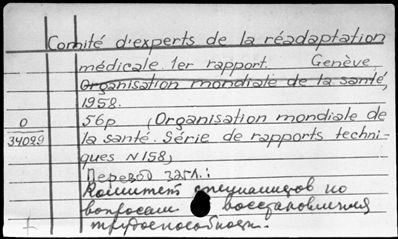 Comité d'experts de la réadaptation
médicale. 1er rapport. Genève,
Organisation mondiale de la santé,
1958.
56p (Organisation mondiale de
la santé. Série de rapports techni-
ques N 158)
Перевод загл.:
Комитет специалистов по
вопросам восстановления
трудоспособности.
0
34099